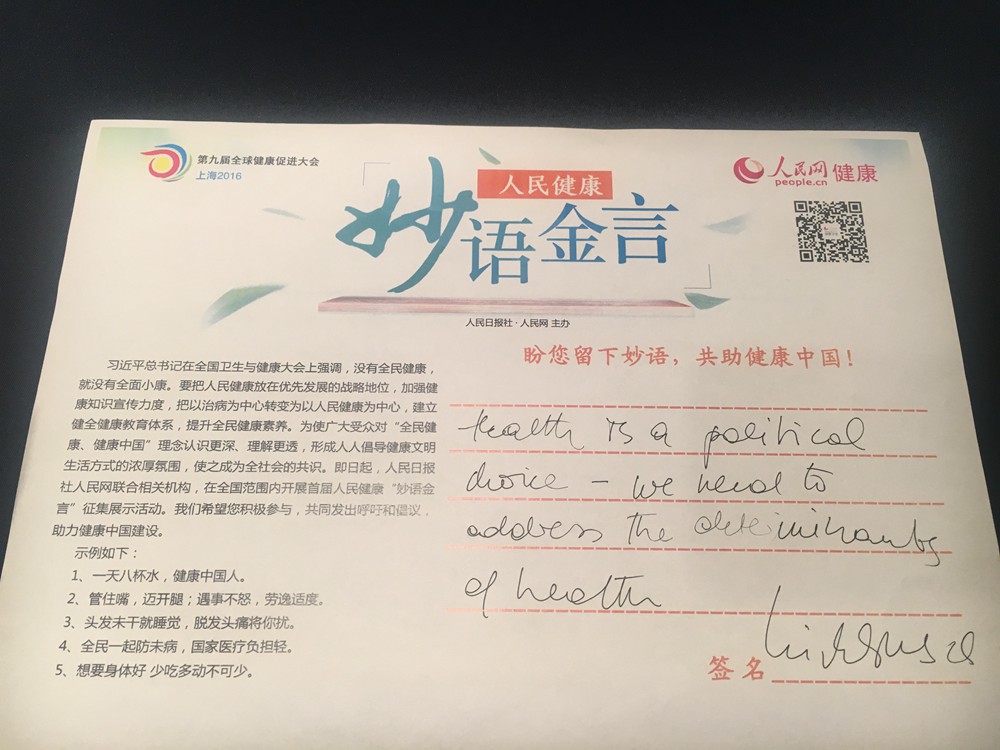 第九届全球健康促进大会
上海2016
人民网 健康
people.cn
人民健康
妙语金言
人民日报社·人民网 主办
习近平总书记在全国卫生与健康大会上强调，没有全民健康，
就没有全面小康。要把人民健康放在优先发展的战略地位，加强健
康知识宣传力度，把以治病为中心转变为以人民健康为中心，建立
健全健康教育体系，提升全民健康素养。为使广大受众对“全民健
康、健康中国”理念认识更深、理解更透，形成人人倡导健康文明
生活方式的浓厚氛围，使之成为全社会的共识。即日起，人民日报
社人民网联合相关机构，在全国范围内开展首届人民健康“妙语金
言”征集展示活动。我们希望您积极参与，共同发出呼吁和倡议，
助力健康中国建设。
示例如下：
1、一天八杯水，健康中国人。
2、管住嘴，迈开腿；遇事不怒，劳逸适度。
3、头发未干就睡觉，脱发头痛将你扰。
4、全民一起防未病，国家医疗负担轻。
5、想要身体好 少吃多动不可少。
盼您留下妙语，共助健康中国！
Health is a political
choice – we need to
address the determinants
of health
签名